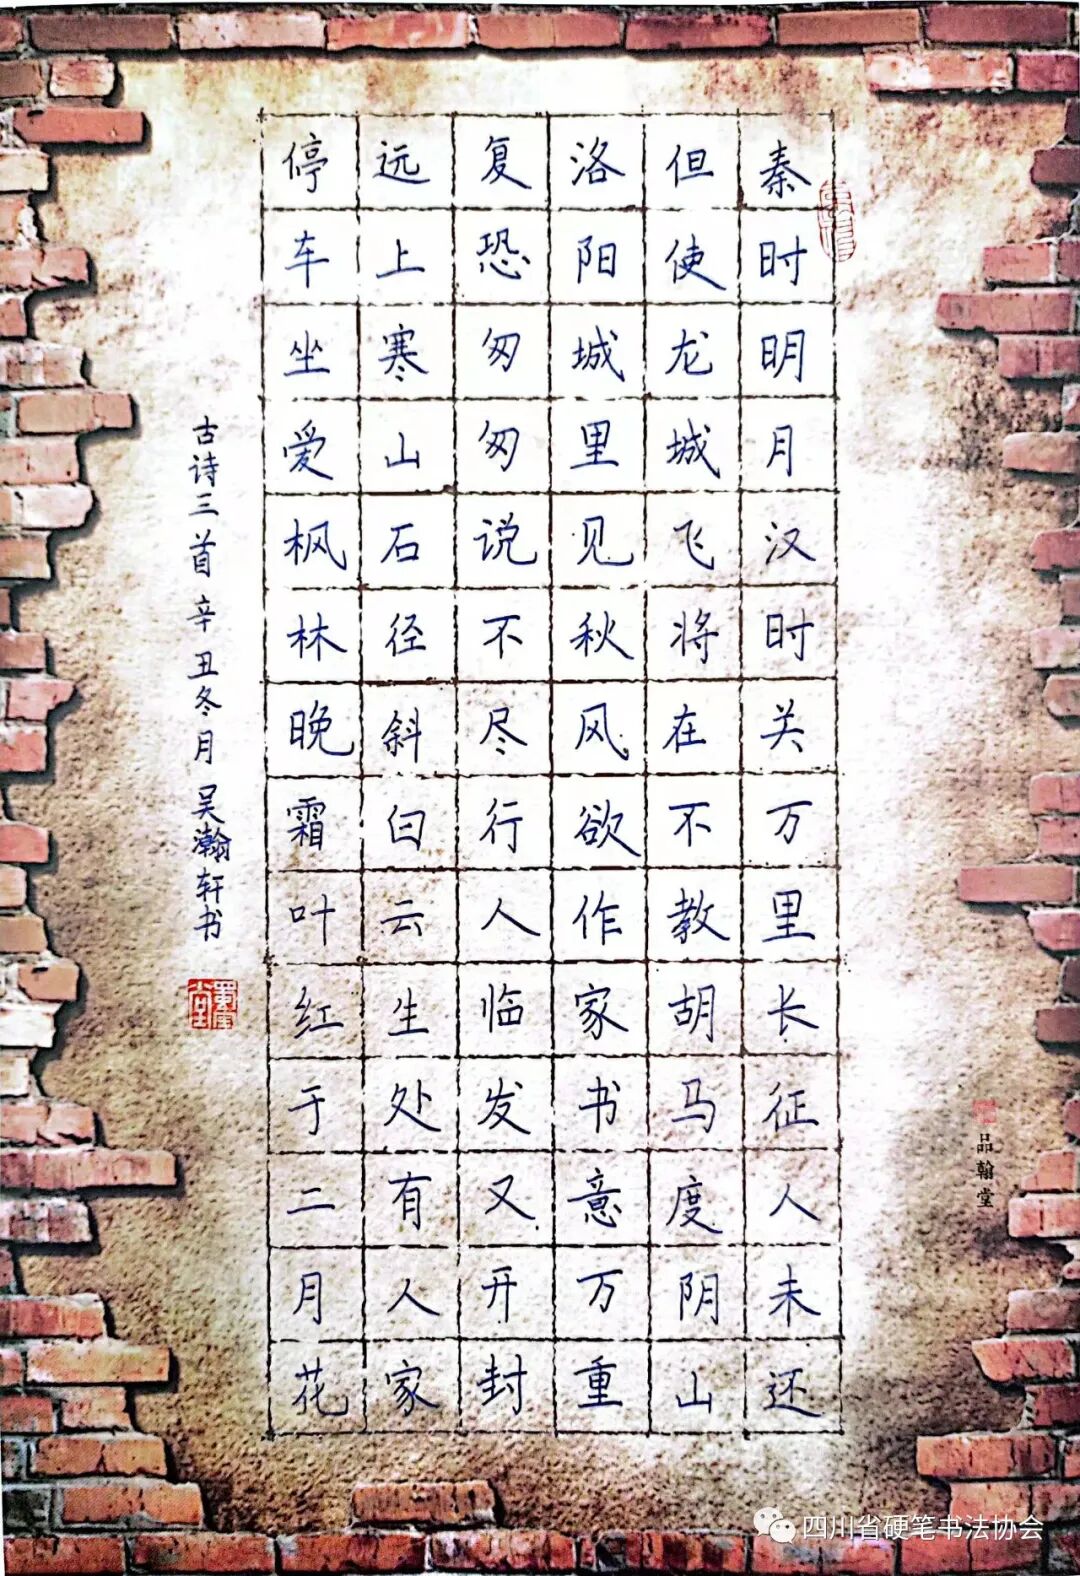 秦时明月汉时关万里长征人未还
但使龙城飞将在不教胡马度阴山
洛阳城里见秋风欲作家书意万重
复恐匆匆说不尽行人临发又开封
远上寒山石径斜白云生处有人家
停车坐爱枫林晚霜叶红于二月花
古诗三首 辛丑冬月 吴瀚轩书
品翰堂
四川省硬笔书法协会